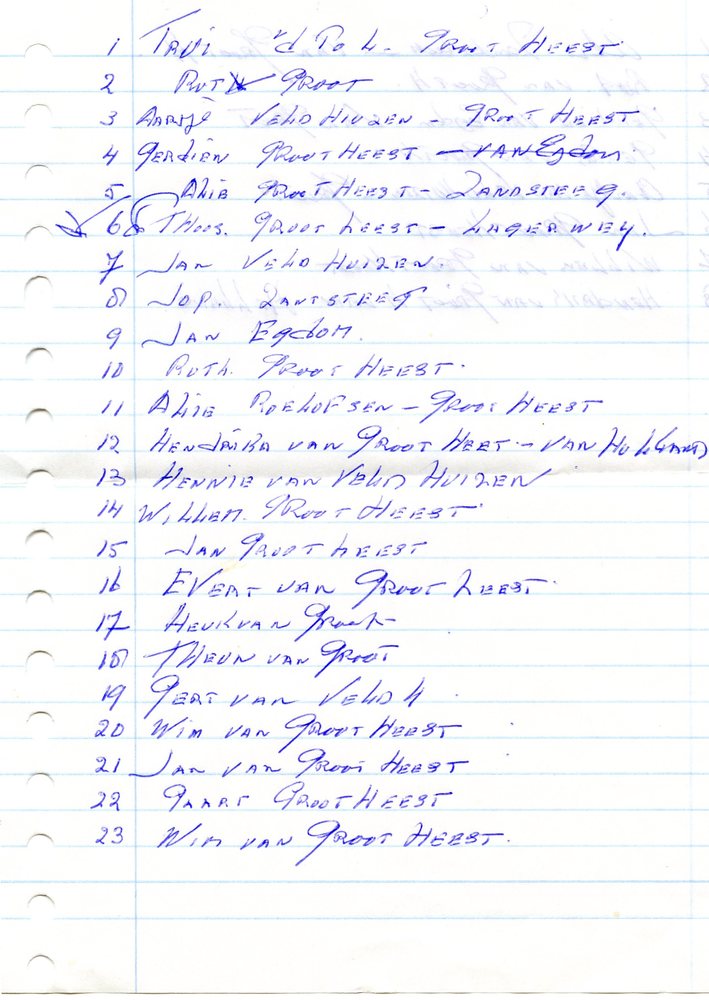 1 TRUI v'd POL - GROOT HEEST
2 RUTH GROOT
3 AARTJE VELDHUIZEN - GROOT HEEST
4 GERDIEN GROOT HEEST - VAN Egdom
5 ALIE GROOT HEEST - ZANDSTEEG.
6 GROOT HEEST - LAGERWEY.
7 JAN VELDHUIZEN.
8 JOP. ZANTSTEEG
9 JAN EGdOM.
10 RUTH. GROOT HEEST.
11 ALIE ROELOFSEN - GROOT HEEST
12 HENDRIKA VAN GROOT HEET - VAN
13 HENNIE VAN VELD HUIZEN
14 WILLEM. GROOT HEEST
15 JAN GROOT HEEST
16 EVERT VAN GROOT HEEST.
17 HENK VAN GROOT
18 THEUN VAN GROOT
19 GERT VAN VELD H.
20 WIM VAN GROOT HEEST
21 JAN VAN GROOT HEEST
22 GAART GROOT HEEST
23 WIM VAN GROOT HEEST.